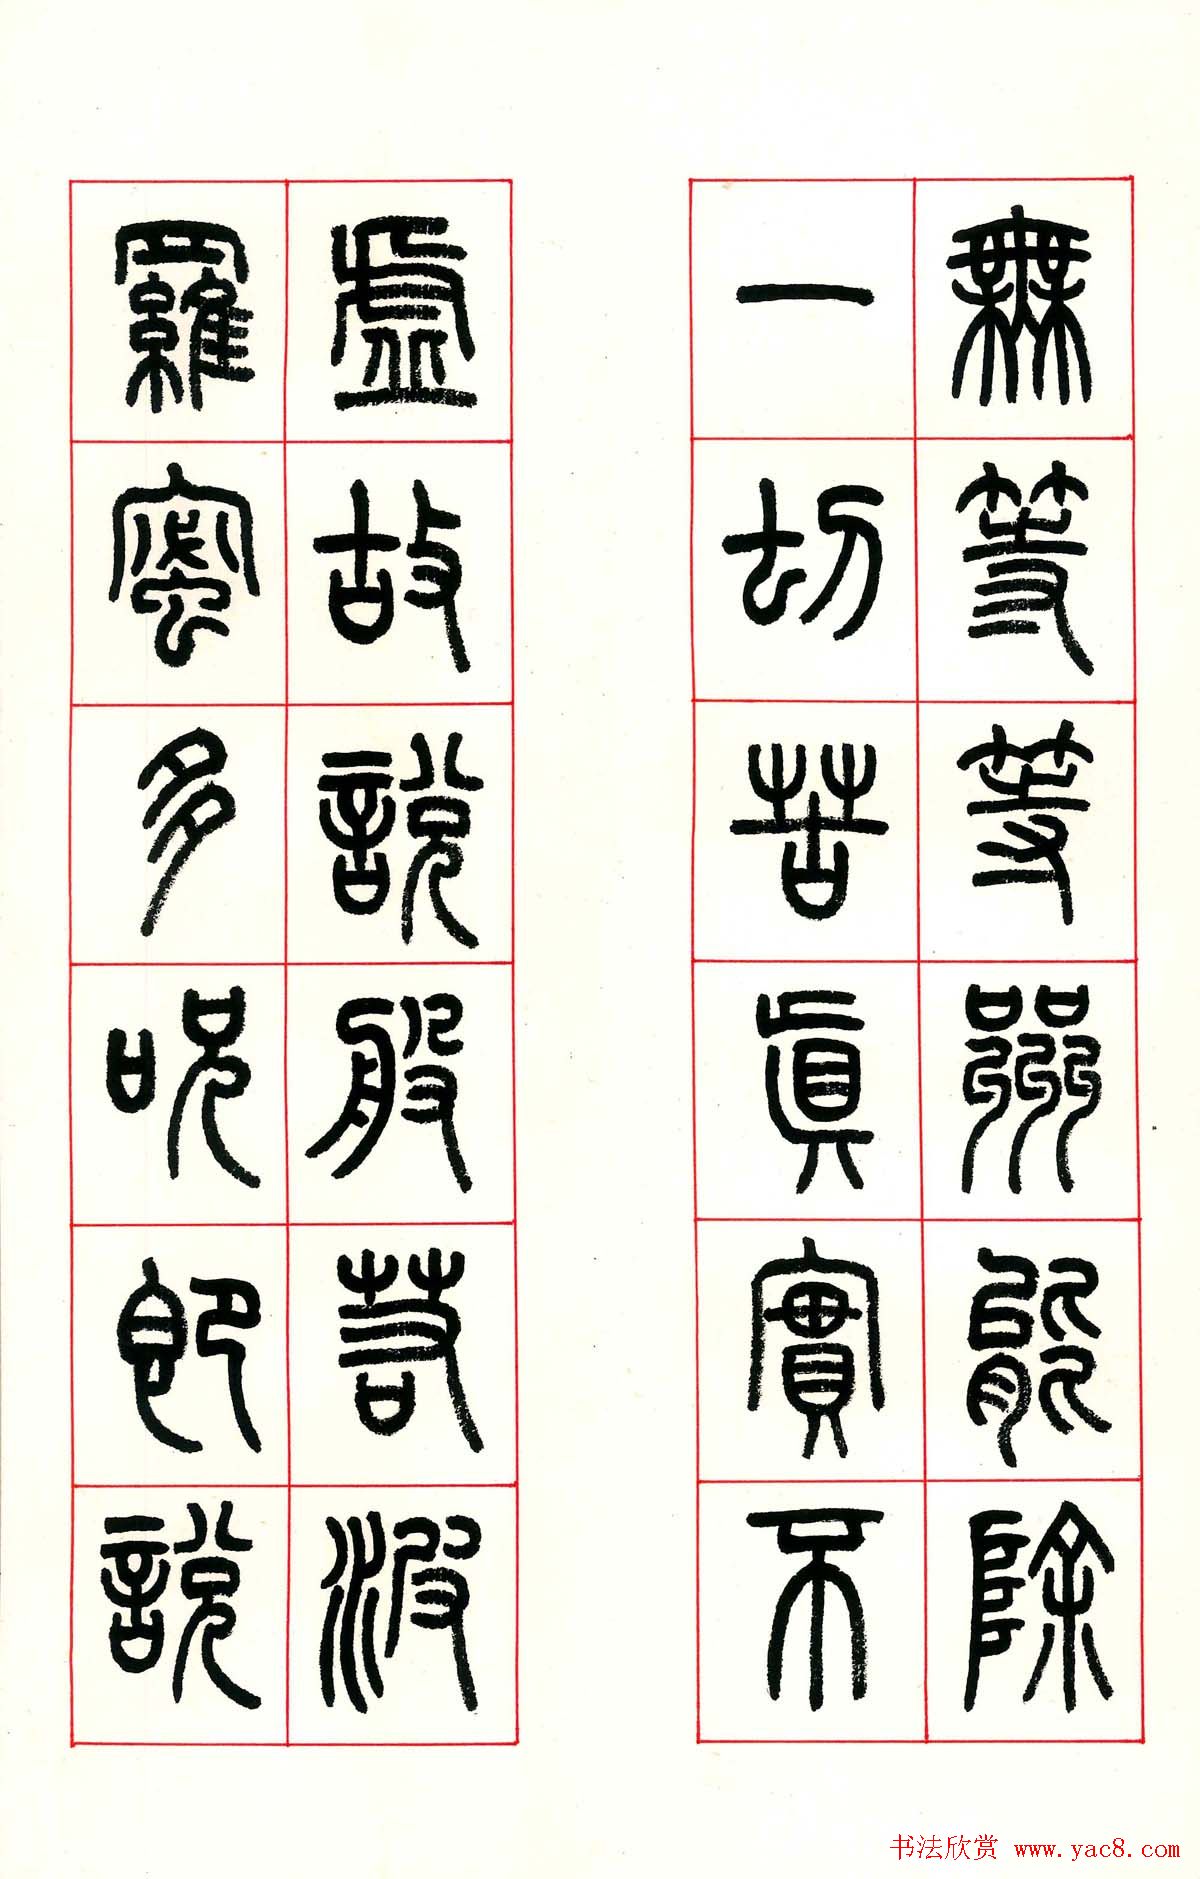 無等等咒能除
一切苦真實不
虛故說般若波
羅蜜多呪即說
书法欣赏 www.yac8.com